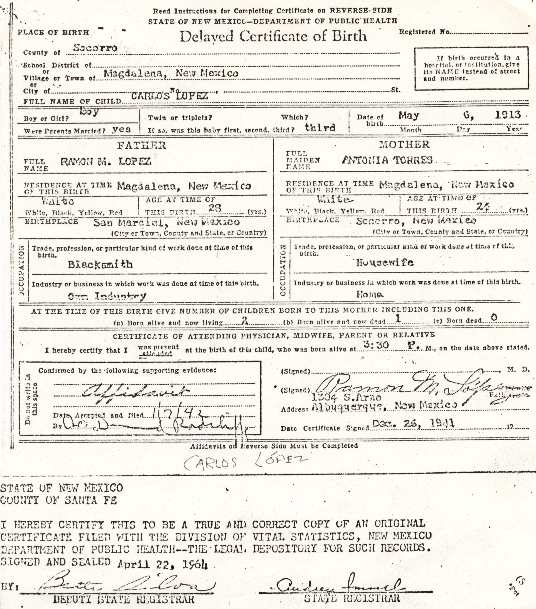 Read Instructions for Completing Certificate on REVERSE SIDE
STATE OF NEW MEXICO—DEPARTMENT OF PUBLIC HEALTH
PLACE OF BIRTH Delayed Certificate of Birth Registered No.
County of Socorro
School District of
or
Village or Town of Magdalena, New Mexico
or
City of No. St.
If birth occurred in a hospital or institution, give its NAME instead of street and number.
FULL NAME OF CHILD CARLOS LOPEZ
Boy or Girl? boy Twin or triplets? Which? Date of birth May 6, 1913
Month Day Year
Were Parents Married? yes If so, was this baby first, second, third? third
FATHER MOTHER
FULL NAME RAMON M. LOPEZ FULL MAIDEN NAME ANTONIA TORRES
RESIDENCE AT TIME OF THIS BIRTH Magdalena, New Mexico RESIDENCE AT TIME OF THIS BIRTH Magdalena, New Mexico
White AGE AT TIME OF White AGE AT TIME OF
White, Black, Yellow, Red THIS BIRTH 28 (yrs.) White, Black, Yellow, Red THIS BIRTH (yrs.)
BIRTHPLACE San Marcial, New Mexico BIRTHPLACE Socorro, New Mexico
(City or Town, County and State, or Country) (City or Town, County and State, or Country)
OCCUPATION Trade, profession, or particular kind of work done at time of this birth. OCCUPATION Trade, profession, or particular kind of work done at time of this birth.
Blacksmith Housewife
Industry or business in which work was done at time of this birth. Industry or business in which work was done at time of this birth.
Own Industry Home
AT THE TIME OF THIS BIRTH GIVE NUMBER OF CHILDREN BORN TO THIS MOTHER INCLUDING THIS ONE.
(a) Born alive and now living 2 (b) Born alive and now dead 1 (c) Born dead 0
CERTIFICATE OF ATTENDING PHYSICIAN, MIDWIFE, PARENT OR RELATIVE
I hereby certify that I was present attended at the birth of this child, who was born alive at 3:30 P. M., on the date above stated.
Do not write in this space
Confirmed by the following supporting evidence: (Signed) M. D.
Affidavit (Signed) Ramon M. Lopez
Father
1204 S. Arno
Date Accepted and Filed Address Albuquerque, New Mexico
By Date Certificate Signed Dec. 26, 1941
Affidavits on Reverse Side Must be Completed
CARLOS LÓPEZ
STATE OF NEW MEXICO
COUNTY OF SANTA FE
I HEREBY CERTIFY THIS TO BE A TRUE AND CORRECT COPY OF AN ORIGINAL
CERTIFICATE FILED WITH THE DIVISION OF VITAL STATISTICS, NEW MEXICO
DEPARTMENT OF PUBLIC HEALTH--THE LEGAL DEPOSITORY FOR SUCH RECORDS.
SIGNED AND SEALED April 22, 1964
BY:
DEPUTY STATE REGISTRAR STATE REGISTRAR